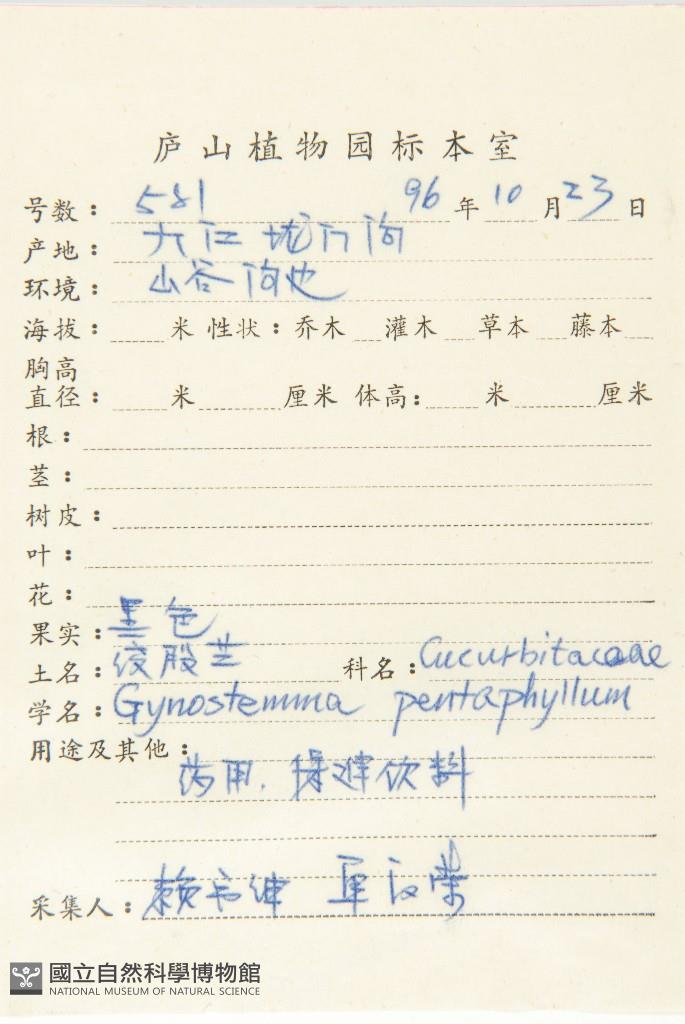 庐山植物园标本室
号数： 581 96 年 10 月 23 日
产地： 九江 垅门沟
环境： 山谷沟边
海拔： 米 性状：乔木 灌木 草本 藤本
胸高
直径： 米 厘米 体高： 米 厘米
根：
茎：
树皮：
叶：
花：
果实： 黑色
土名： 绞股兰 科名： Cucurbitaceae
学名： Gynostemma pentaphyllum
用途及其他：
药用. 保健饮料
采集人： 赖书绅
國立自然科學博物館
NATIONAL MUSEUM OF NATURAL SCIENCE